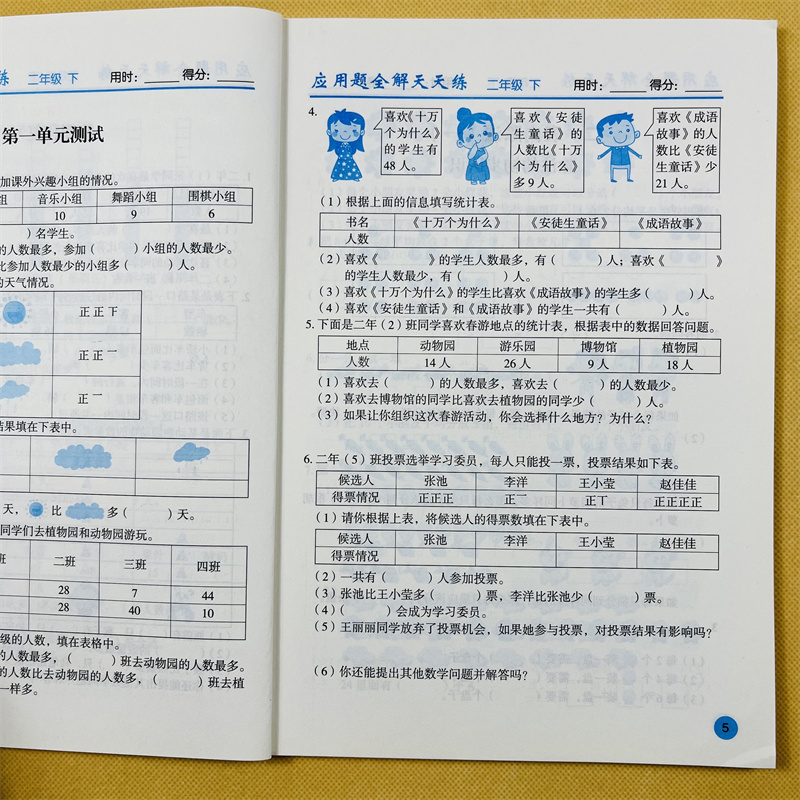 练 二年级 下 用时：_____ 得分：_____
第一单元测试
加课外兴趣小组的情况。
组 音乐小组 舞蹈小组 围棋小组
10 9 6
）名学生。
的人数最多，参加（ ）小组的人数最少。
比参加人数最少的小组多（ ）人。
的天气情况。
正正下
正正一
正一
结果填在下表中。
天， 比 多（ ）天。
同学们去植物园和动物园游玩。
班 二班 三班 四班
28 7 44
28 40 10
级的人数，填在表格中。
的人数最多，（ ）班去动物园的人数最多。
的人数比去动物园的人数多，（ ）班去植
一样多。
应用题全解天天练 二年级 下 用时：_____ 得分：_____
4.
喜欢《十万
个为什么》
的学生有
48 人。
喜欢《安徒
生童话》的
人数比《十万
个为什么》
多 9 人。
喜欢《成语
故事》的人
数比《安徒
生童话》少
21 人。
（1）根据上面的信息填写统计表。
书名 《十万个为什么》 《安徒生童话》 《成语故事》
人数
（2）喜欢《 》的学生人数最多，有（ ）人；喜欢《 》
的学生人数最少，有（ ）人。
（3）喜欢《十万个为什么》的学生比喜欢《成语故事》的学生多（ ）人。
（4）喜欢《安徒生童话》和《成语故事》的学生一共有（ ）人。
5. 下面是二年（2）班同学喜欢春游地点的统计表，根据表中的数据回答问题。
地点 动物园 游乐园 博物馆 植物园
人数 14 人 26 人 9 人 18 人
（1）喜欢去（ ）的人数最多，喜欢去（ ）的人数最少。
（2）喜欢去博物馆的同学比喜欢去植物园的同学少（ ）人。
（3）如果让你组织这次春游活动，你会选择什么地方？为什么？
6. 二年（5）班投票选举学习委员，每人只能投一票，投票结果如下表。
候选人 张池 李洋 王小莹 赵佳佳
得票情况 正正正 正一 正丅 正正正正
（1）请你根据上表，将候选人的得票数填在下表中。
候选人 张池 李洋 王小莹 赵佳佳
得票情况
（2）一共有（ ）人参加投票。
（3）张池比王小莹多（ ）票，李洋比张池少（ ）票。
（4）（ ）会成为学习委员。
（5）王丽丽同学放弃了投票机会，如果她参与投票，对投票结果有影响吗？
（6）你还能提出其他数学问题并解答吗？
5